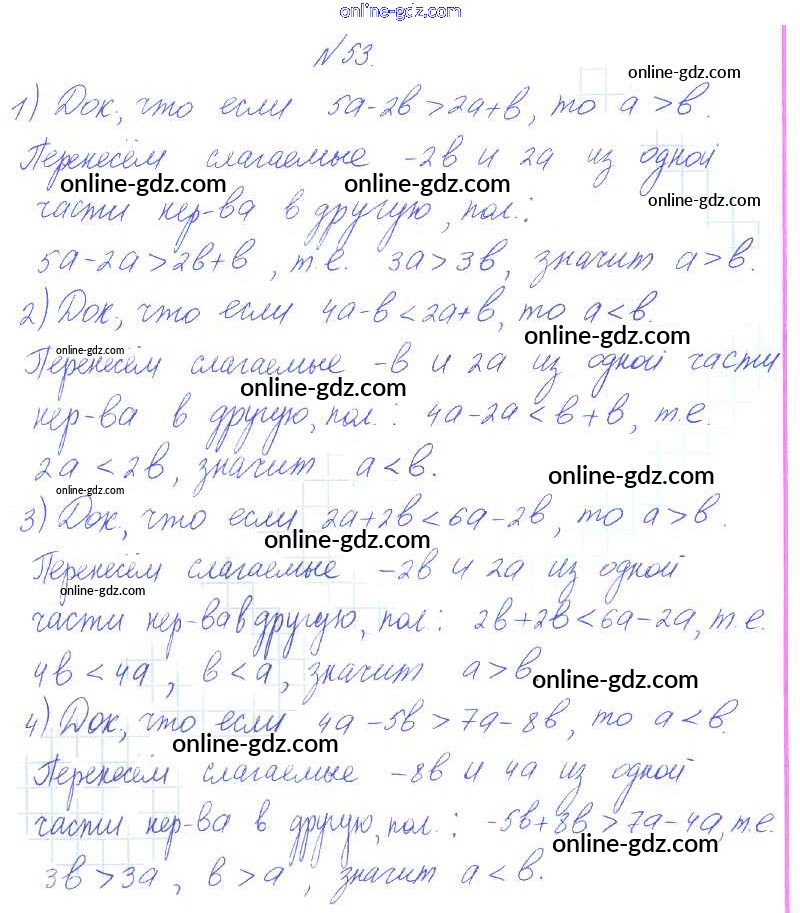 online-gdz.com
N53.
online-gdz.com
1) Док, что если 5a-2b>2a+b, то a>b.
Перенесём слагаемые -2b и 2a из одной
online-gdz.com online-gdz.com online-gdz.com
части нер-ва в другую, пол.:
5a-2a>2b+b, т.е. 3a>3b, значит a>b.
2) Док, что если 4a-b<2a+b, то a<b.
online-gdz.com
online-gdz.com
Перенесём слагаемые -b и 2a из одной части
online-gdz.com
нер-ва в другую, пол.: 4a-2a<b+b, т.е.
2a<2b, значит a<b.
online-gdz.com
online-gdz.com
3) Док, что если 2a+2b<6a-2b, то a>b.
online-gdz.com
Перенесём слагаемые -2b и 2a из одной
online-gdz.com
части нер-ва в другую, пол: 2b+2b<6a-2a, т.е.
4b<4a, b<a, значит a>b
online-gdz.com
4) Док, что если 4a-5b>7a-8b, то a<b.
online-gdz.com
Перенесём слагаемые -8b и 4a из одной
части нер-ва в другую, пол.: -5b+8b>7a-4a, т.е.
online-gdz.com
3b>3a, b>a, значит a<b.